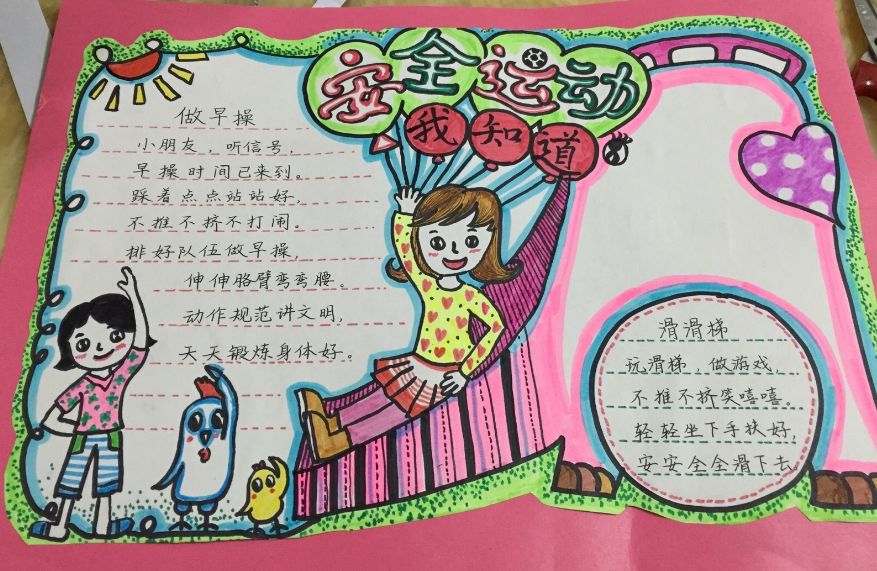 安全运动
我知道
做早操
小朋友，听信号，
早操时间已来到。
踩着点点站站好，
不推不挤不打闹。
排好队伍做早操，
伸伸胳臂弯弯腰。
动作规范讲文明，
天天锻炼身体好。
滑滑梯
玩滑梯，做游戏，
不推不挤笑嘻嘻。
轻轻坐下手扶好，
安安全全滑下去。